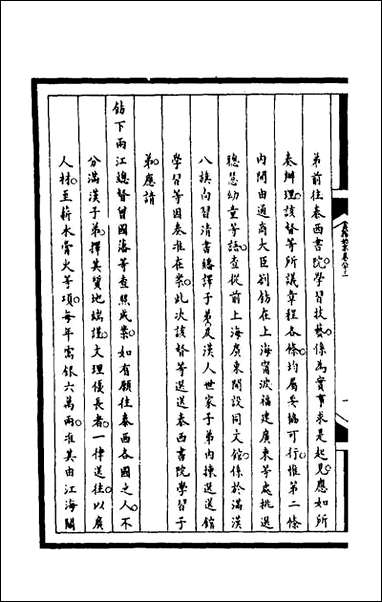 弟前往泰西書院學習技藝係為實事求是起見應如所
奏辦理該督等所議章程各條均屬妥協可行惟第二條
內開由通商大臣劄飭在上海甯波福建廣東等處挑選
聰慧幼童等語查從前上海廣東開設同文館係於滿漢
八旗向習清書繙譯子弟及漢人世家子弟內揀選送館
學習等因奏准在案此次該督等選送泰西書院學習子
弟應請
飭下兩江總督曾國藩等查照成案如有願往泰西各國之人不
分滿漢子弟擇其質地端謹文理優長者一律送往以廣
人材至薪水膏火等項每年需銀六萬兩准其由江海關